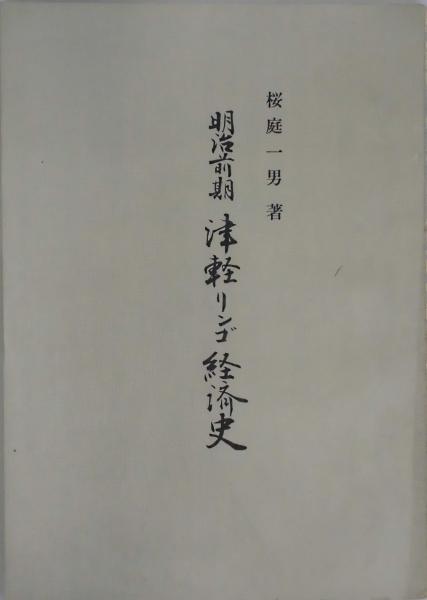 桜庭一男 著
明治前期 津軽リンゴ経済史